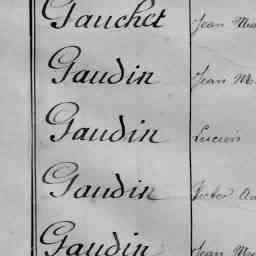 Gauchet Jean
Gaudin Jean M
Gaudin Lucien
Gaudin
Gaudin Jean